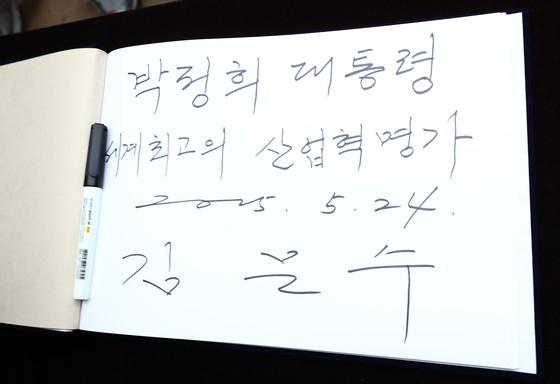 박정희 대통령
세계최고의 산업혁명가
2025. 5. 24.
김문수